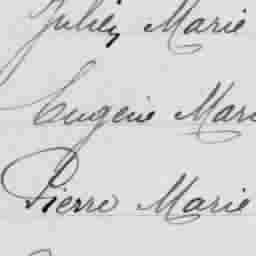 Julien Marie
Eugène Mari
Pierre Marie